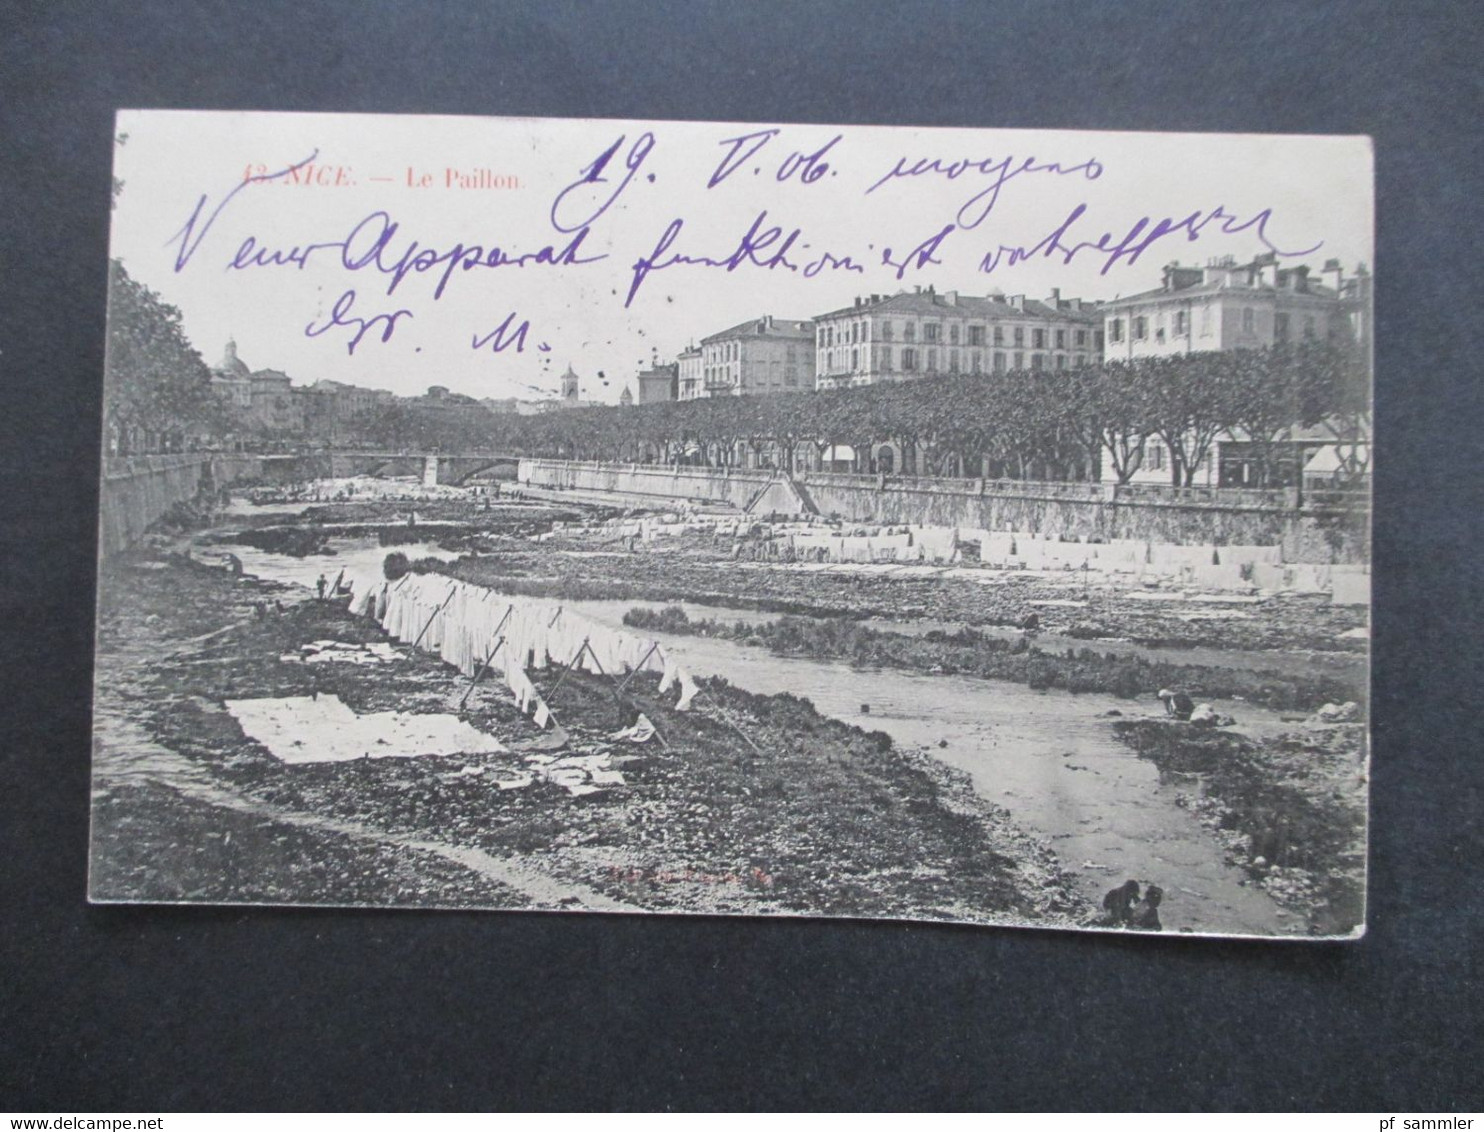 43. NICE. — Le Paillon.
19. V. 06. morgens
Neuer Apparat funktioniert vortrefflich
Gr. M.
pf_sammler